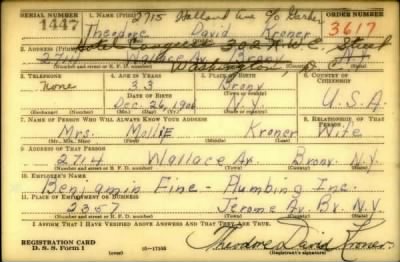 SERIAL NUMBER 1. NAME (Print) 2715 Holland Ave c/o Gerber ORDER NUMBER
1447 Theodore David Kroner 3617
(First) (Middle) (Last)
2. ADDRESS (Print) Hotel 302 N.W. C. Street
2714 Wallace Av. Bronx N.Y.
(Number and street or R. F. D. number) (Town) (County) (State)
Washington, D.C.
3. TELEPHONE 4. AGE IN YEARS 5. PLACE OF BIRTH 6. COUNTRY OF CITIZENSHIP
none 33 Bronx
DATE OF BIRTH (Town or county)
Dec. 26, 1906 N.Y. U.S.A.
(Exchange) (Number) (Mo.) (Day) (Yr.) (State or country)
7. NAME OF PERSON WHO WILL ALWAYS KNOW YOUR ADDRESS 8. RELATIONSHIP OF THAT PERSON
Mrs. Mollie Kroner Wife
(Mr., Mrs., Miss) (First) (Middle) (Last)
9. ADDRESS OF THAT PERSON
2714 Wallace Av. Bronx. N.Y.
(Number and street or R. F. D. number) (Town) (County) (State)
10. EMPLOYER'S NAME
Benjamin Fine - Plumbing Inc.
11. PLACE OF EMPLOYMENT OR BUSINESS
2357 Jerome Av. Bx. N.Y.
(Number and street or R. F. D. number) (Town) (County) (State)
I AFFIRM THAT I HAVE VERIFIED ABOVE ANSWERS AND THAT THEY ARE TRUE.
REGISTRATION CARD
D. S. S. Form 1 (over) 16—17105 Theodore David Kroner
(Registrant's signature)